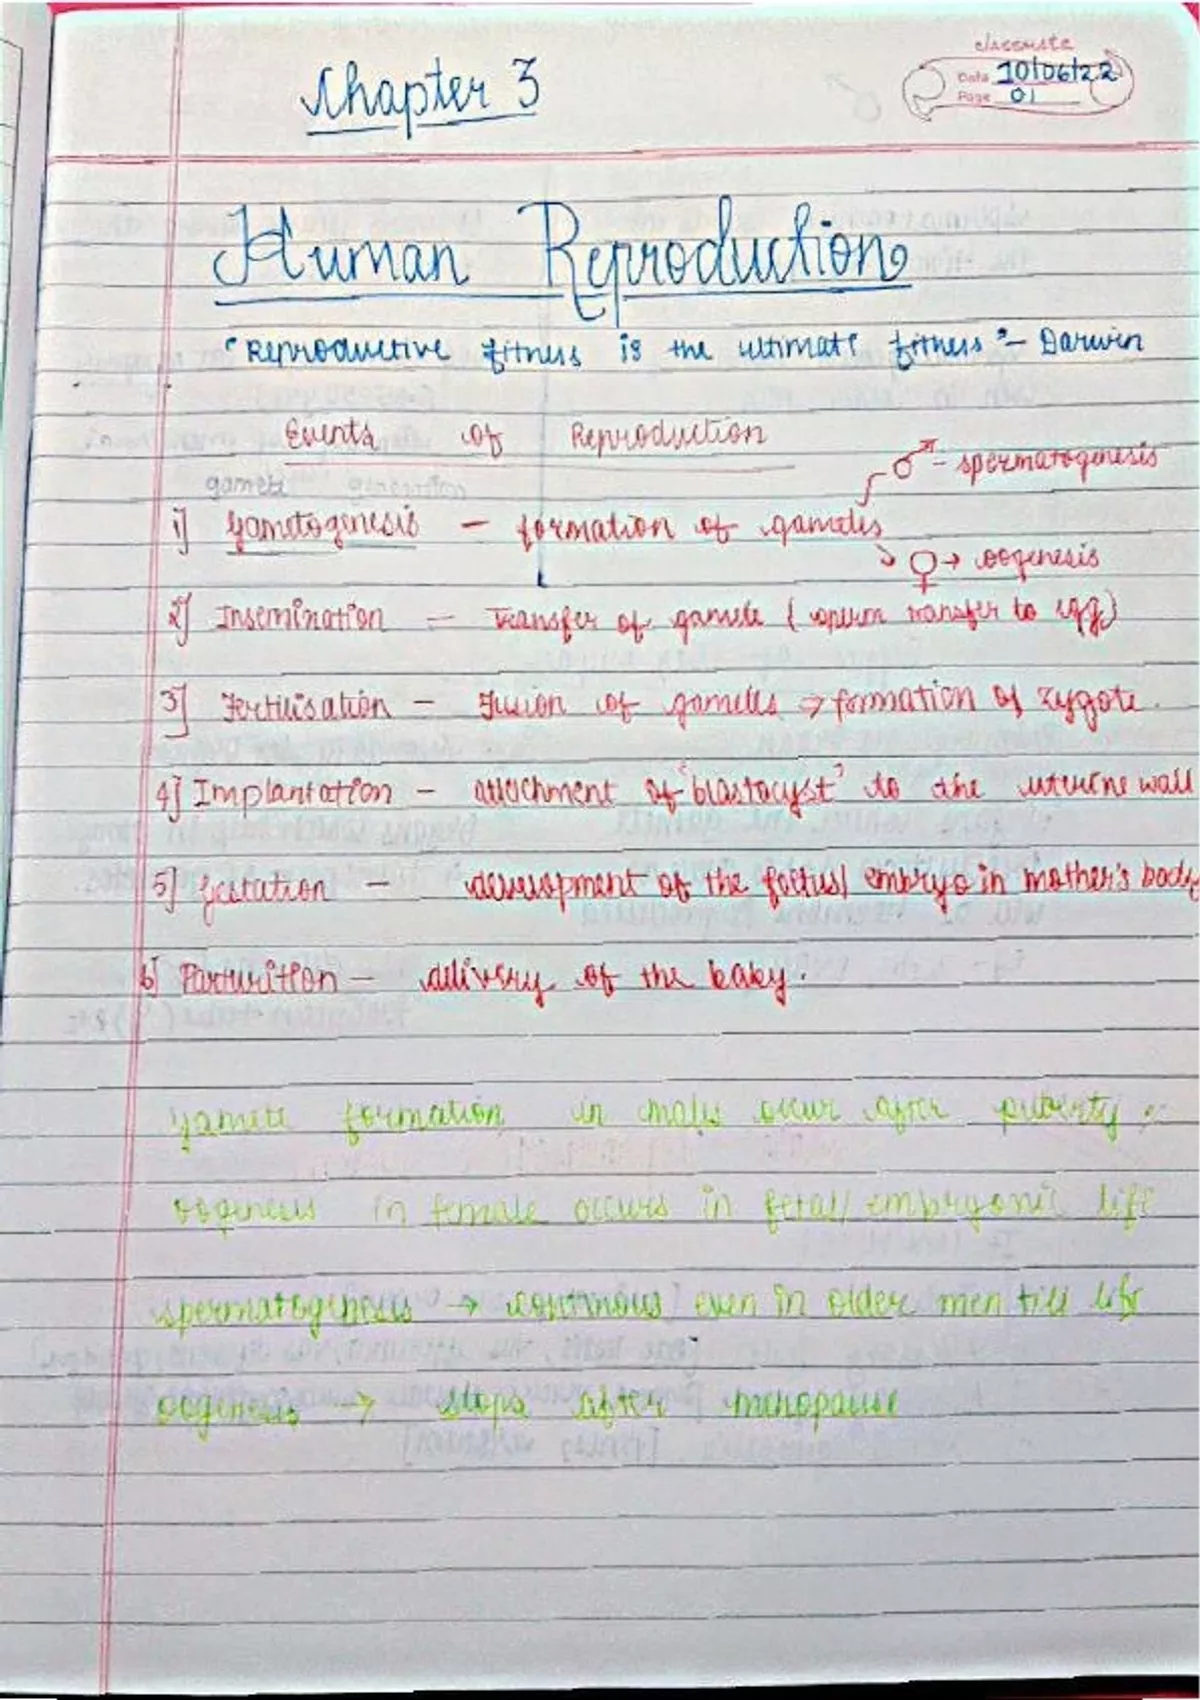 classmate
Date 10/06/22
Page 01
Chapter 3
Human Reproduction
"Reproductive fitness is the ultimate fitness" - Darwin
Events of Reproduction
♂ - spermatogenesis
gamete generation
1) Gametogenesis - formation of gametes
♀ → oogenesis
2) Insemination - Transfer of gamete ( sperm transfer to egg)
3] Fertilisation - Fusion of gametes → formation of zygote.
4] Implantation - attachment of 'blastocyst' to the uterine wall
5] Gestation - development of the foetus/ embryo in mother's body
6] Parturition - delivery of the baby.
Gamete formation in males occur after puberty
oogenesis in female occurs in fetal/ embryonic life
spermatogenesis → continous even in older men till life
oogenesis → stops after menopause